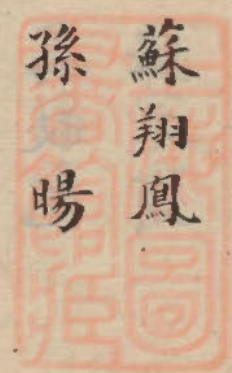 蘇翔鳳
孫暘